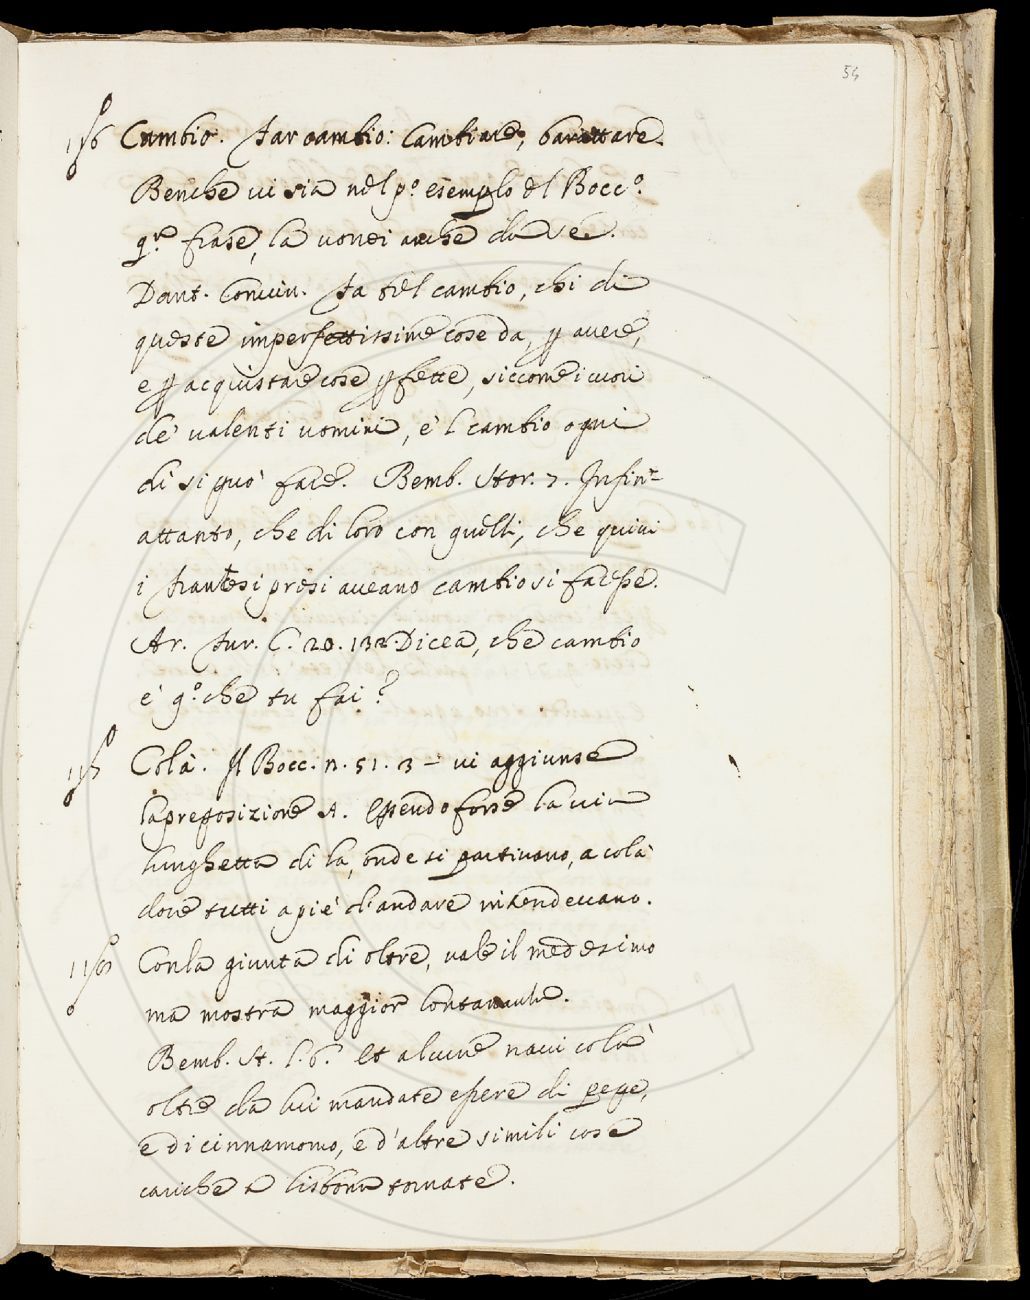 54
Cambio. Far cambio: Cambiare, barattare.
Benche vi sia nel pº esemplo del Boccº.
qta frase, la vorrei anche da se.
Dant. Conviv. Fa tel cambio, chi di
queste imperfettissime cose da, p avere,
e p acquistare cose pfette, siccome i cuori
de' valenti uomini, e 'l cambio ogni
dì si può fare. Bemb. Stor. 7. Infin-
attanto, che di loro con quelli, che quivi
i Franzesi presi aveano cambio si facesse.
Ar. Fur. C. 20. 132. Dicea, che cambio
e' qº. che tu fai?
Colà. Il Bocc. n. 51. 3 - vi aggiunse
la preposizione A. Essendo forse la via
lunghetta di la, onde si partivano, a colà
dove tutti a piè d'andare intendevano.
Con la giunta di oltre, vale il medesimo
ma mostra maggior lontananza.
Bemb. St. l. 6. Et alcune navi colà
oltre da lui mandate essere di pepe,
e di cinnamomo, e d'altre simili cose
cariche a Lisbona tornate.